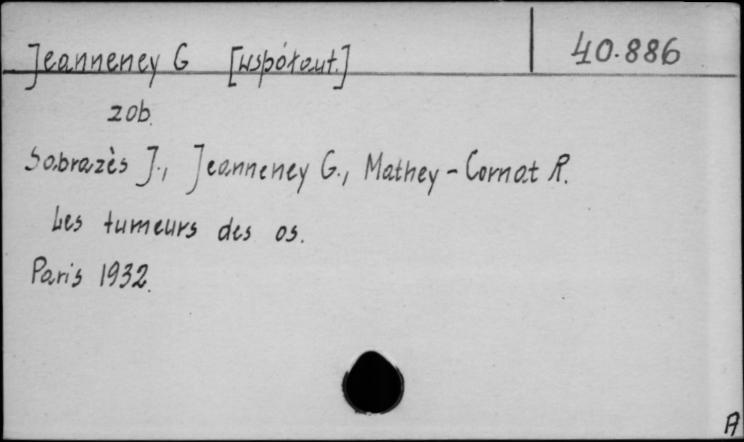 Jeanneney G [współaut.] 40.886
zob.
Sabrazès J., Jeanneney G., Mathey-Cornat R.
Les tumeurs des os.
Paris 1932.
A